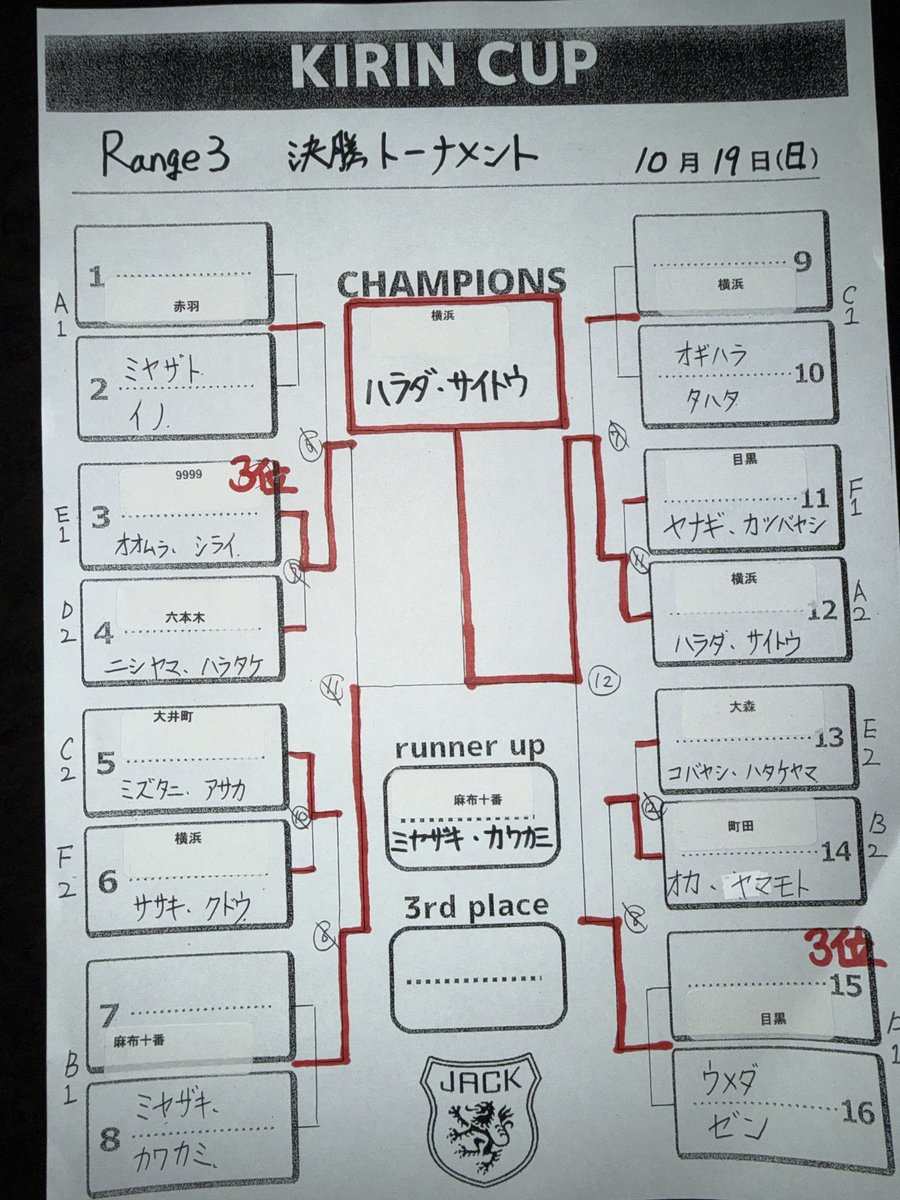 KIRIN CUP
Range3 決勝トーナメント 10月19日(日)
CHAMPIONS
横浜
ハラダ・サイトウ
A
1
1
赤羽
2
ミヤザト
イノ
E
1
3
9999
3位
オオムラ、シライ
D
2
4
六本木
ニシヤマ、ハラタケ
C
2
5
大井町
ミズタニ、アサカ
F
2
6
横浜
ササキ、クドウ
B
1
7
麻布十番
8
ミヤザキ、
カワカミ
9
横浜
C
1
オギハラ
10
タハタ
目黒
11
ヤナギ、カツバヤシ
F
1
横浜
12
ハラダ、サイトウ
A
2
大森
13
コバヤシ・ハタケヤマ
E
2
町田
14
オカ、ヤマモト
B
2
3位
15
目黒
1
ウメダ
16
ゼン
12
runner up
麻布十番
ミヤザキ・カワカミ
3rd place
JACK